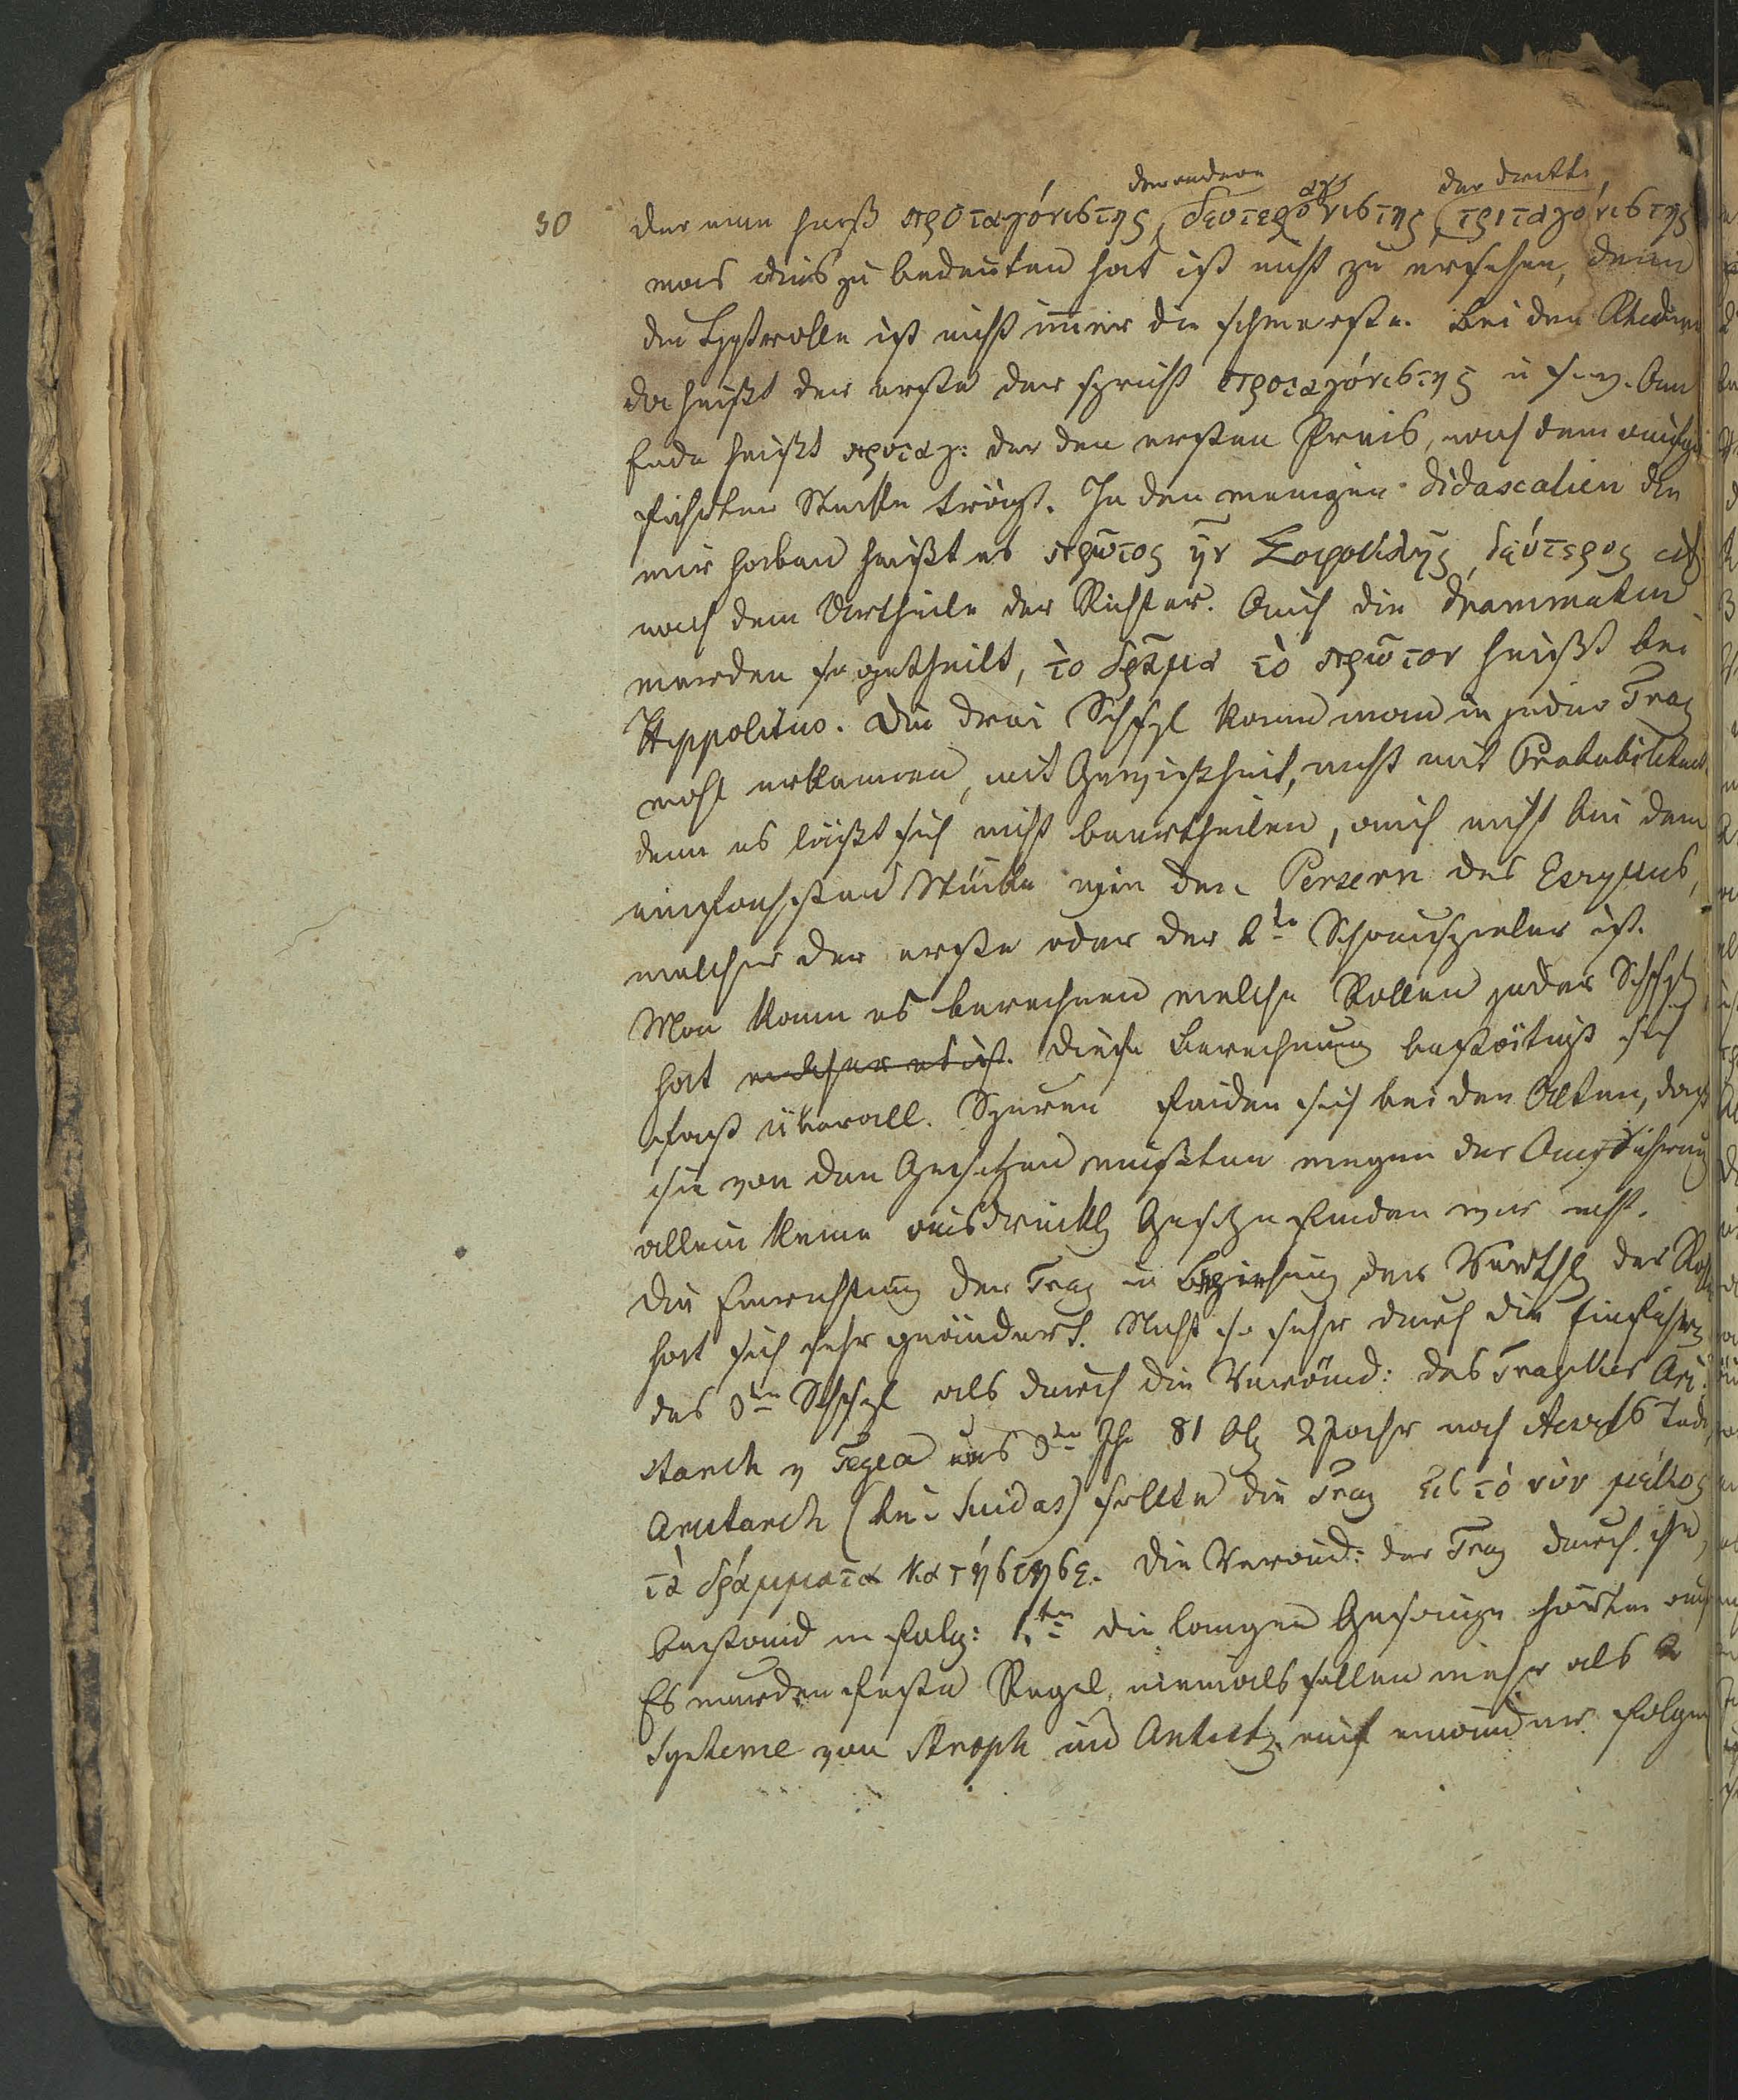 30
der andere der dritte
der eine heist προταγόνιστης, δευτεραγόνιστης, τριταγόνιστης
was dies zu bedeuten hat ist nicht zu ersehen, denn
die Hptrolle ist nicht im̄er die schwerste. Bei den
da heißt der erste der spricht προταγόνιστης u s. w. Am
Ende heißt προταγ: der den ersten Preis, nach dem aufge
führten Stücke trägt. In den wenigen Didascalien die
wir haben heißt es πρῶτος ἦν Σοφοκλῆς, δεύτερος
nach dem Urtheile der Richter. Auch die Dramata
werden so getheilt, τὸ δρᾶμα τὸ πρῶτον heißt bei
Hippolitus. Die drei Schspl kann man in jeder Trag
wohl erkennen, mit Gewißheit, nicht mit Probabilitaet
denn es läßt sich nicht beurtheilen, auch nicht bei dem
einfachsten Stücke wie den Persern des Eschylus,
welcher der erste oder der 2te Schauspieler ist.
Man kann es berechnen welche Rollen jeder Schspl
hat welcher es ist. Diese Berechnung bestätigt sich
fast überall. Spuren finden sich bei den Alten, daß
sie von den Gesetzen wußten wegen der Aufführung
allein keine ausdrückl Gesetze finden wir nicht.
Die Einrichtung der Trag in Beziehung der Verthlg der Rolle
hat sich sehr geändert. Nicht so sehr durch die Einführg
des 3ten Schspl als durch die Veränd: des Tragikers Ari
starch v Tegea 3ten Jhr 81 Ol 2 Jahr nach Aesch Tode
Aristarch (bei Suidas) sollte die Trag εἰς τὸ νῦν μῆκος
τὰ δράμματα κατήστησε. Die Veränd: der Trag durch ihn,
bestand in folg: 1tn die langen Gesänge hörten auf
Es wurden feste Regel, niemals sollen mehr als 2
Systeme von Stroph und Antist. auf einander folgen